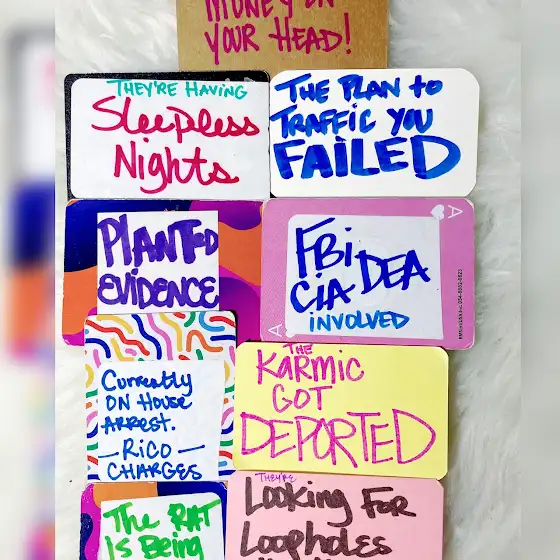 MONEY ON
YOUR HEAD!
THEY'RE HAVING
Sleepless
Nights
THE PLAN to
TRAFFIC YOU
FAILED
PLANTED
EVIDENCE
FBi
CIA DEA
INVOLVED
A
A
Currently
ON HOUSE
ARREST.
—RICO—
CHARGES
THE
KARMIC
GOT
DEPORTED
The RAT
Is Being
THEY'RE
Looking For
Loopholes